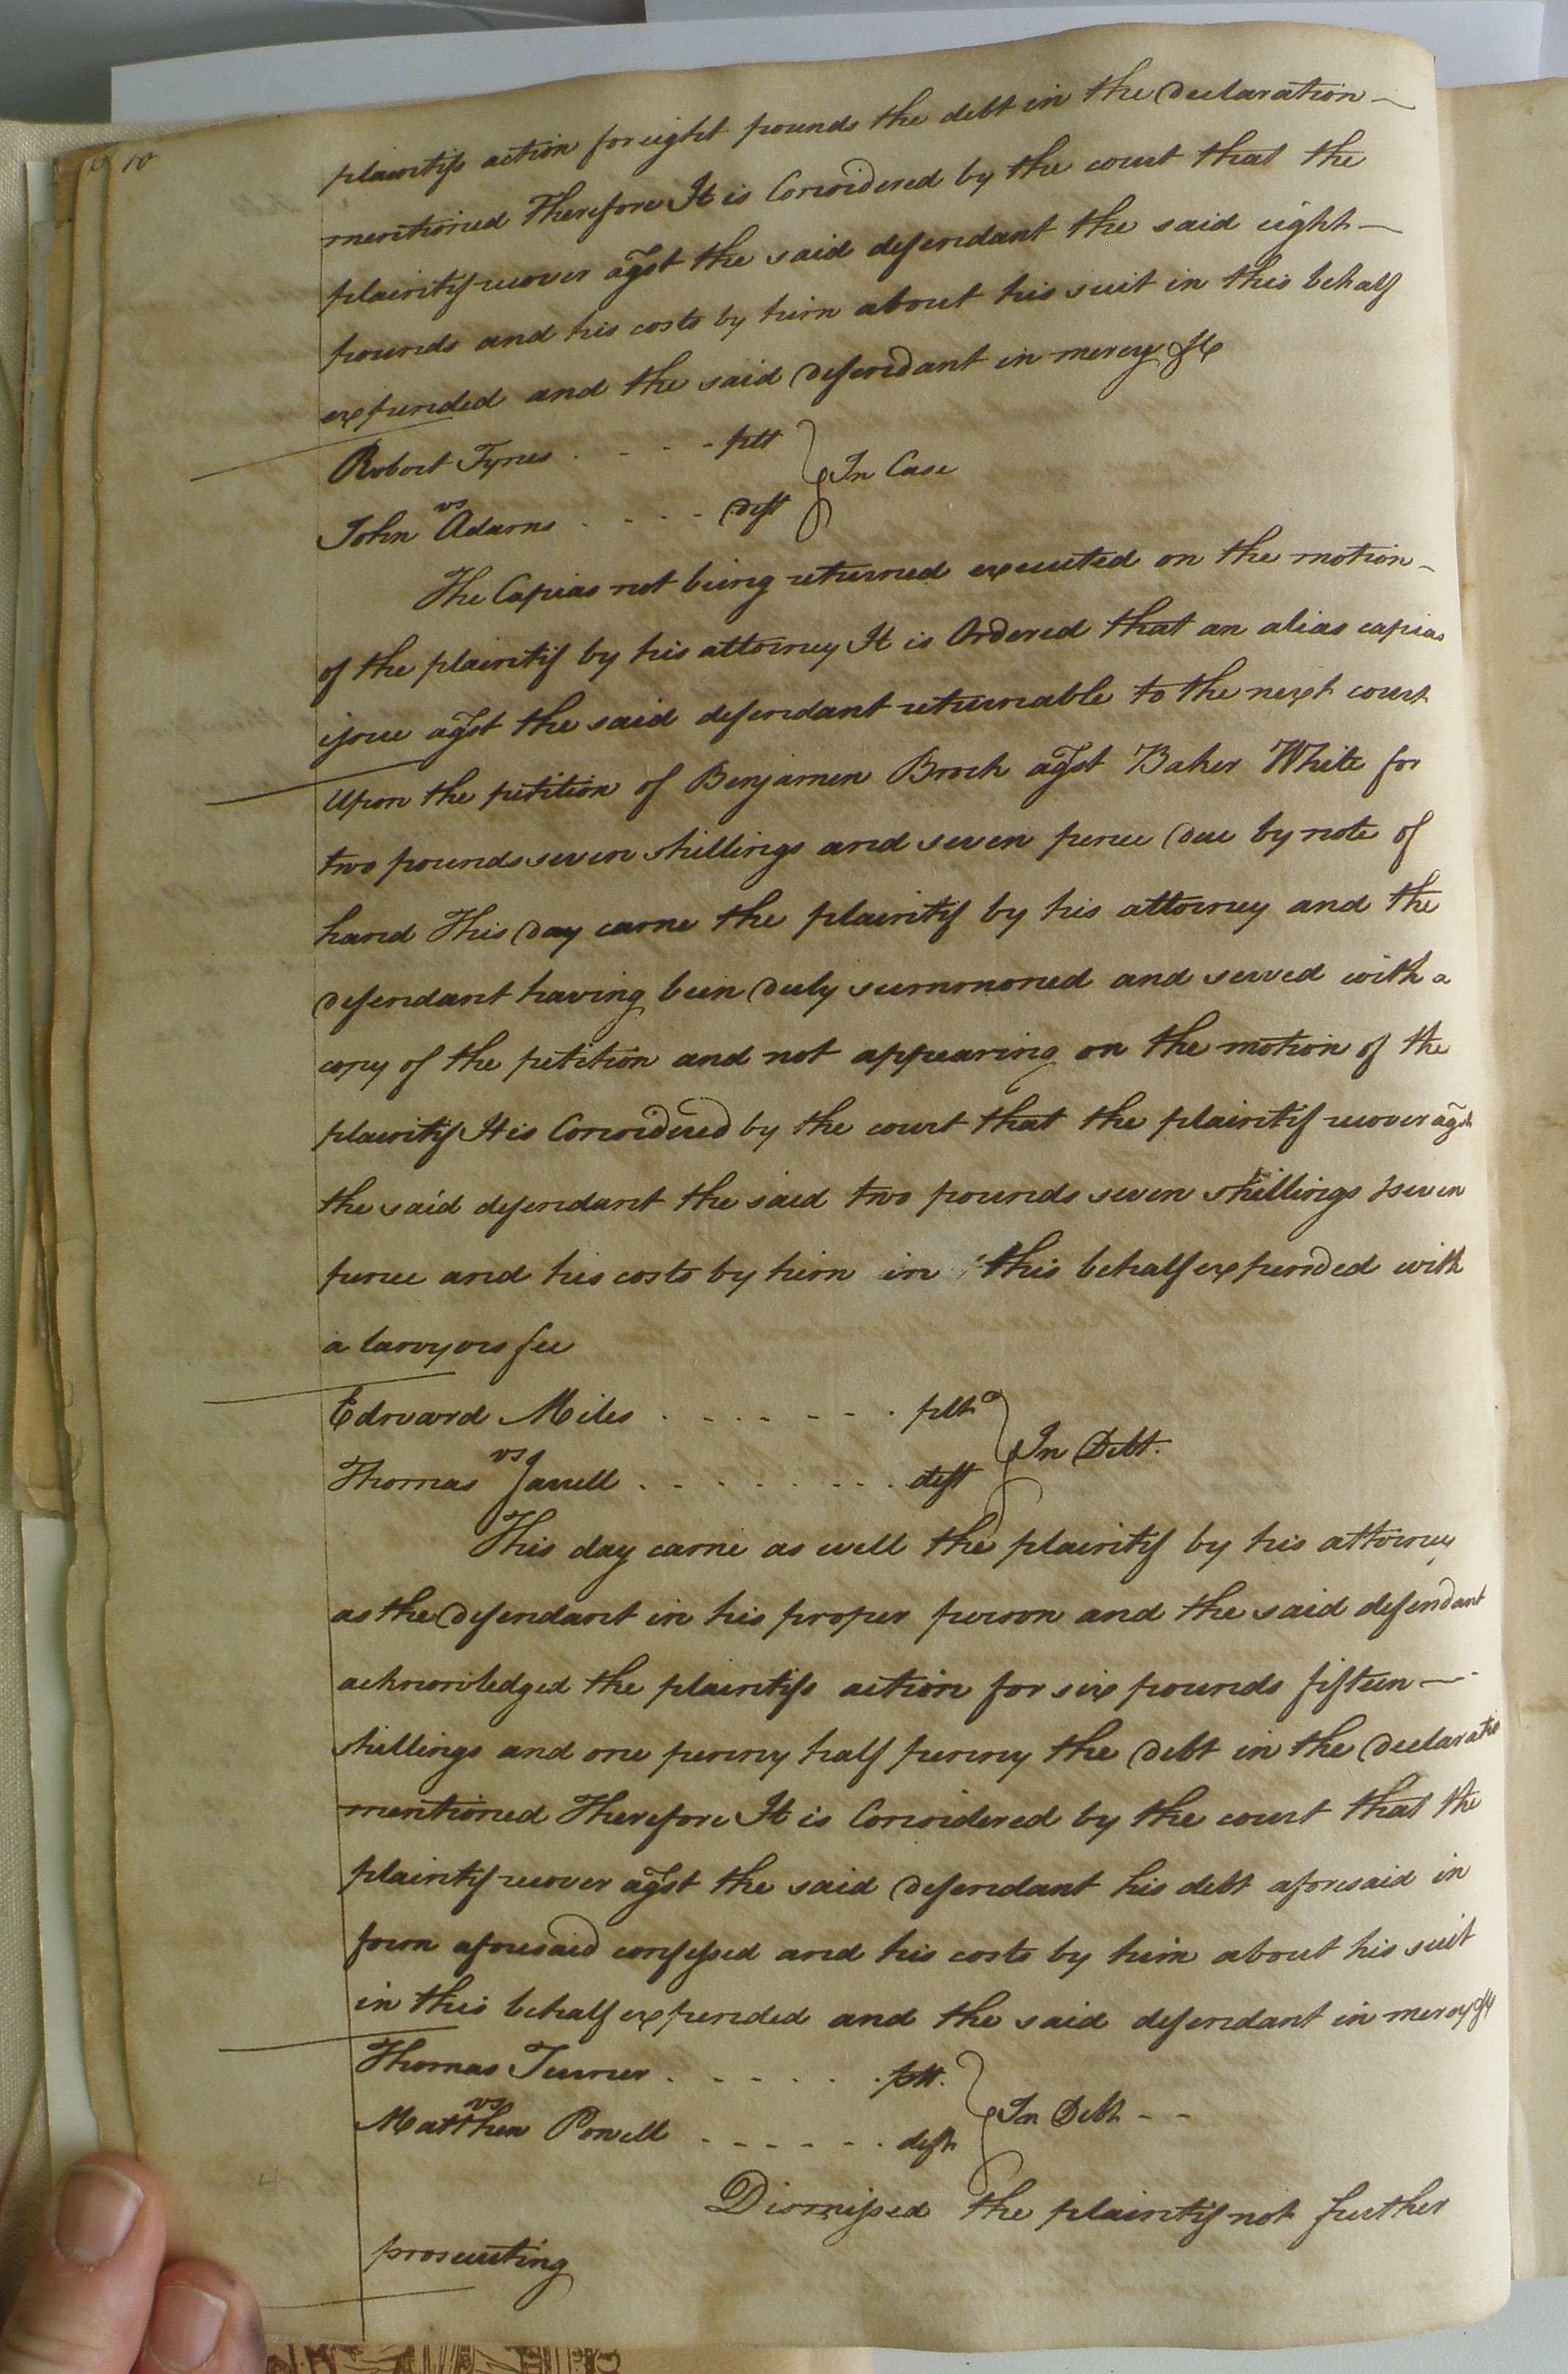 10
plaintifs action for eight pounds the debt in the declaration
mentioned Therefore It is Considered by the court that the
plaintif recover agst the said defendant the said eight
pounds and his costs by him about his suit in this behalf
expended and the said defendant in mercy &c
Robert Tynes . . . . pltt
vs } In Case
John Adams . . . . deft
The Capias not being returned executed on the motion
of the plaintif by his attorney It is Ordered that an alias capias
issue agst the said defendant returnable to the next court
Upon the petition of Benjamen Brock agst Baker White for
two pounds seven shillings and seven pence due by note of
hand This day came the plaintif by his attorney and the
defendant having been duly summoned and served with a
copy of the petition and not appearing on the motion of the
plaintif It is Considered by the court that the plaintif recover agst
the said defendant the said two pounds seven shillings & seven
pence and his costs by him in this behalf expended with
a lawyers fee
Edward Miles . . . . . . . pltt
vs } In Debt.
Thomas Jarrell . . . . . . . . deft
This day came as well the plaintif by his attorney
as the defendant in his proper person and the said defendant
acknowledged the plaintifs action for six pounds fifteen
shillings and one penny half penny the debt in the declaratio
mentioned Therefore It is Considered by the court that the
plaintif recover agst the said defendant his debt aforesaid in
form aforesaid confessed and his costs by him about his suit
in this behalf expended and the said defendant in mercy &c
Thomas Turner . . . . . . pltt.
vs } In Debt - -
Matthew Powell . . . . . . deft
Dismissed the plaintif not further
prosecuting